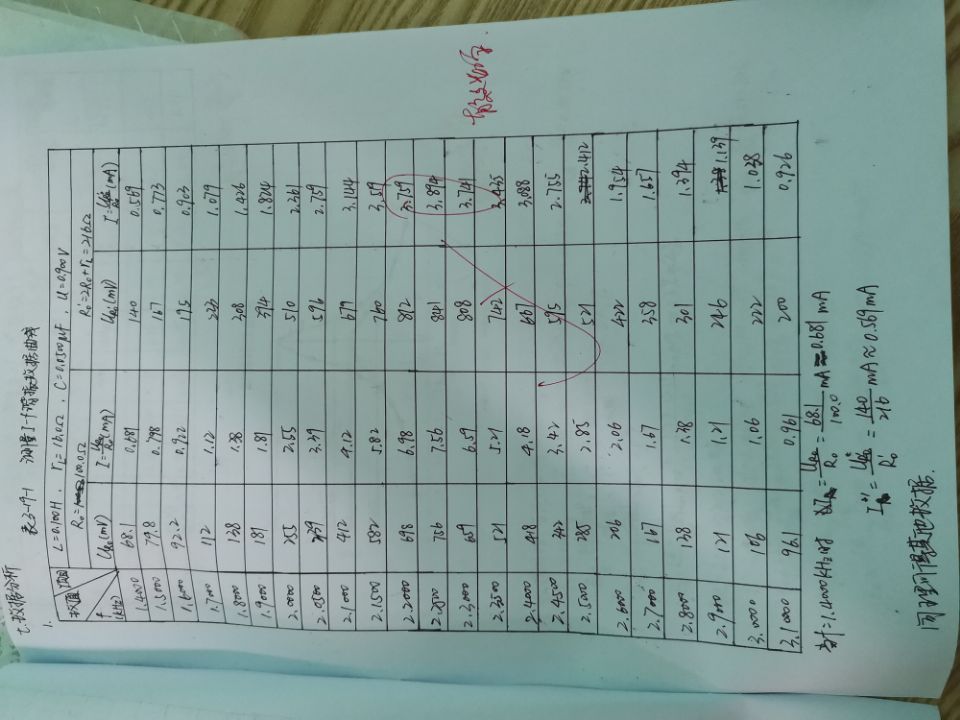 七.数据分析
1. 表3-19-1 测量I-f谐振数据曲线
L=0.100H、rL=16.0Ω、C=0.0500μF、U=0.900V
数值 项目 R₀=100.0Ω R₀'=2R₀+rL=216Ω
f(kHz) UR₀(mV) I=UR₀/R₀(mA) UR₀(mV) I=UR₀/R₀'(mA)
1.4000 68.1 0.681 140 0.569
1.5000 79.8 0.798 167 0.773
1.6000 92.2 0.922 195 0.903
1.7000 112 1.12 233 1.079
1.8000 138 1.38 308 1.426
1.9000 181 1.81 394 1.824
2.0000 255 2.55 510 2.361
2.0500 339 3.39 596 2.759
2.1000 412 4.12 679 3.144
2.1500 582 5.82 760 3.519
2.2000 698 6.98 812 3.759
2.2500 756 7.56 841 3.894
2.3000 659 6.59 808 3.741
2.3500 521 5.21 742 3.435
2.4000 418 4.18 667 3.088
2.4500 342 3.42 595 2.755
2.5000 285 2.85 521 2.412
2.6000 206 2.06 422 1.954
2.7000 167 1.67 358 1.657
2.8000 138 1.38 301 1.394
2.9000 121 1.21 246 1.139
3.0000 106 1.06 222 1.038
3.1000 96.1 0.961 200 0.926
有效数字
当f=1.4000kHz时 I=UR₀/R₀=68.1/100.0 mA=0.681 mA
I=UR₀/R₀'=140/216 mA≈0.569mA
同理可得其他数据.